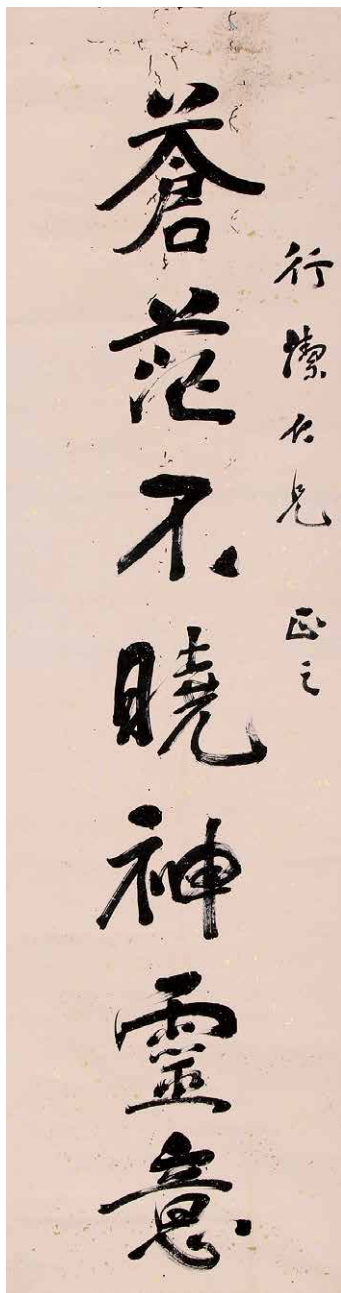 行潔兄 正之
蒼茫不曉神靈意